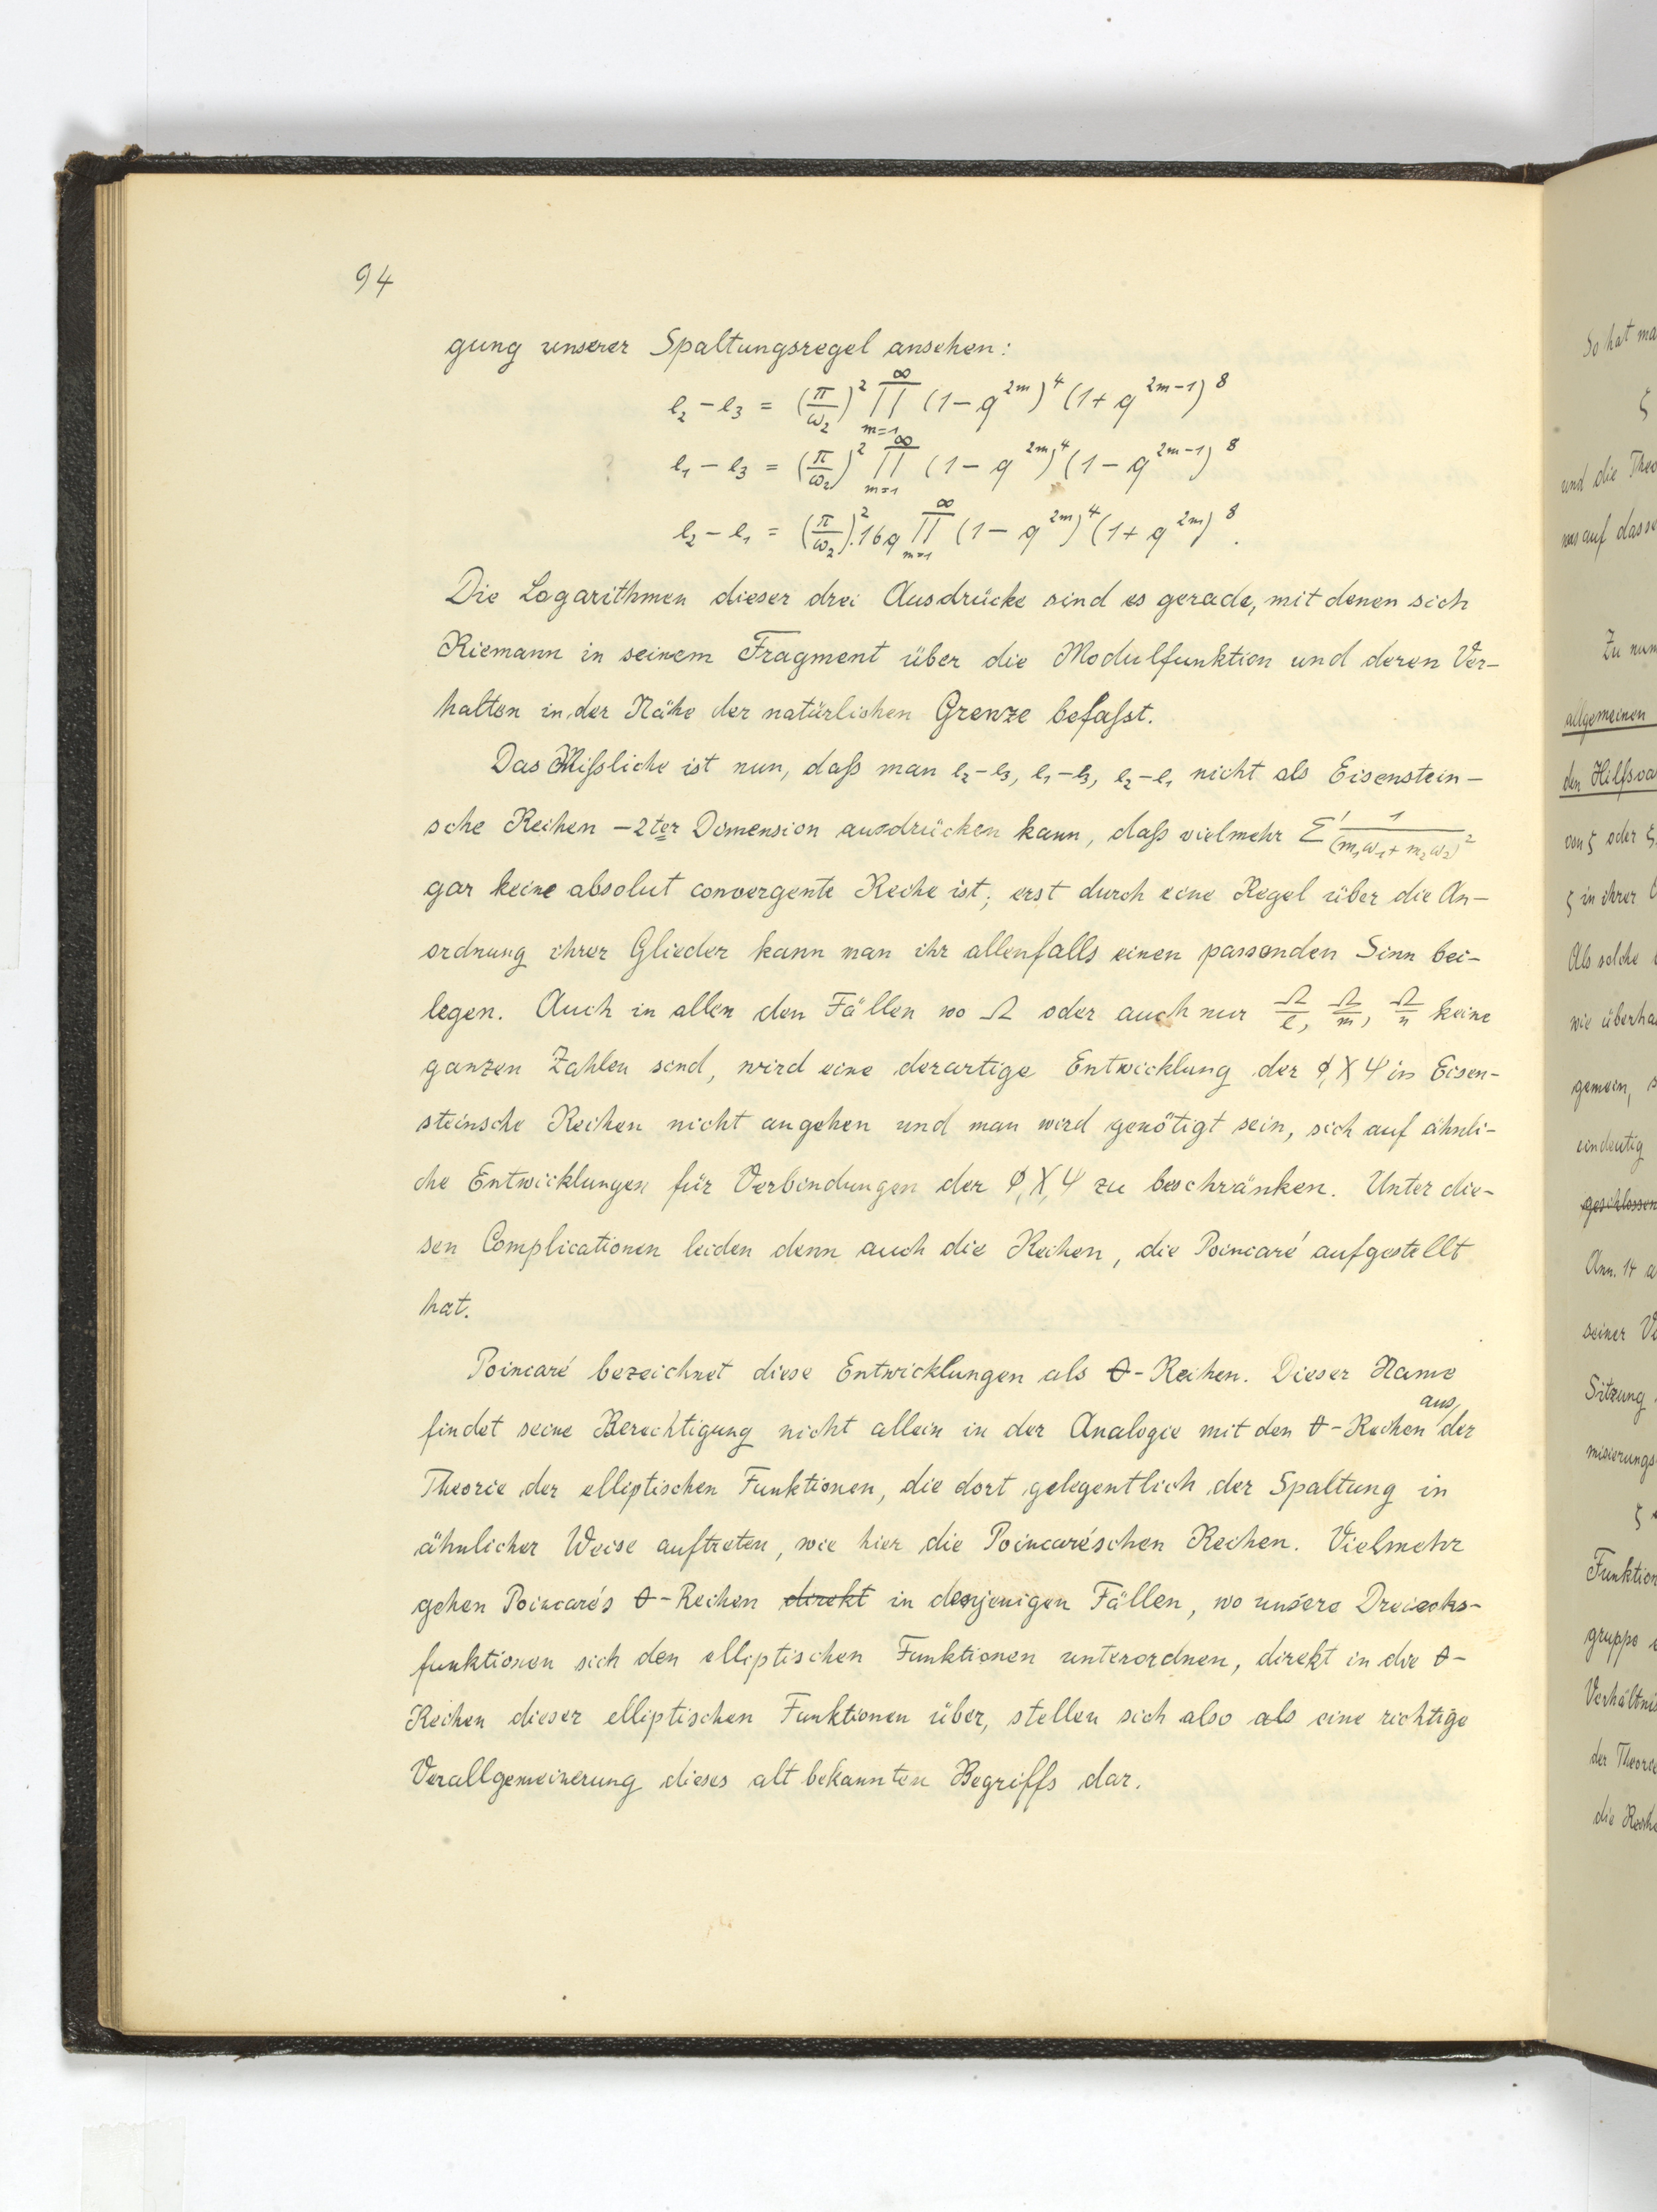 94
gung unserer Spaltungsregel ansehen:
e₂ – e₃ = (π/ω₂)² ∏_{m=1}^{∞} (1 – q^{2m})⁴ (1 + q^{2m–1})⁸
e₁ – e₃ = (π/ω₂)² ∏_{m=1}^{∞} (1 – q^{2m})⁴ (1 – q^{2m–1})⁸
e₂ – e₁ = (π/ω₂)². 16q ∏_{m=1}^{∞} (1 – q^{2m})⁴ (1 + q^{2m})⁸.
Die Logarithmen dieser drei Ausdrücke sind es gerade, mit denen sich
Riemann in seinem Fragment über die Modulfunktion und deren Ver-
halten in der Nähe der natürlichen Grenze befaßt.
Das Mißliche ist nun, daß man e₂–e₃, e₁–e₃, e₂–e₁ nicht als Eisenstein-
sche Reihen –2ter Dimension ausdrücken kann, daß vielmehr Σ' 1/(m₁ω₁ + m₂ω₂)²
gar keine absolut convergente Reihe ist; erst durch eine Regel über die An-
ordnung ihrer Glieder kann man ihr allenfalls einen passenden Sinn bei-
legen. Auch in allen den Fällen wo Ω oder auch nur Ω/l, Ω/m, Ω/n keine
ganzen Zahlen sind, wird eine derartige Entwicklung der φ, X Ψ in Eisen-
steinsche Reihen nicht angehen und man wird genötigt sein, sich auf ähnli-
che Entwicklungen für Verbindungen der φ, X, Ψ zu beschränken. Unter die-
sen Complicationen leiden denn auch die Reihen, die Poincaré aufgestellt
hat.
Poincaré bezeichnet diese Entwicklungen als ϑ-Reihen. Dieser Name
findet seine Berechtigung nicht allein in der Analogie mit den ϑ-Reihen aus der
Theorie der elliptischen Funktionen, die dort gelegentlich der Spaltung in
ähnlicher Weise auftreten, wie hier die Poincaréschen Reihen. Vielmehr
gehen Poincarés ϑ-Reihen direkt in denjenigen Fällen, wo unsere Dreiecks-
funktionen sich den elliptischen Funktionen unterordnen, direkt in die ϑ-
Reihen dieser elliptischen Funktionen über, stellen sich also als eine richtige
Verallgemeinerung dieses altbekannten Begriffs dar.
So hat ma
ζ
und die Theo
was auf dasse
Zu nun
allgemeinen
den Hilfsva
von ζ oder ζ
ζ in ihrer
Als solche
wie überha
gemein, s
eindeutig
geschlossen
Ann. 14 a
seiner V
Sitzung
ζ
Funktion
gruppe
Verhältnis
der Theorie